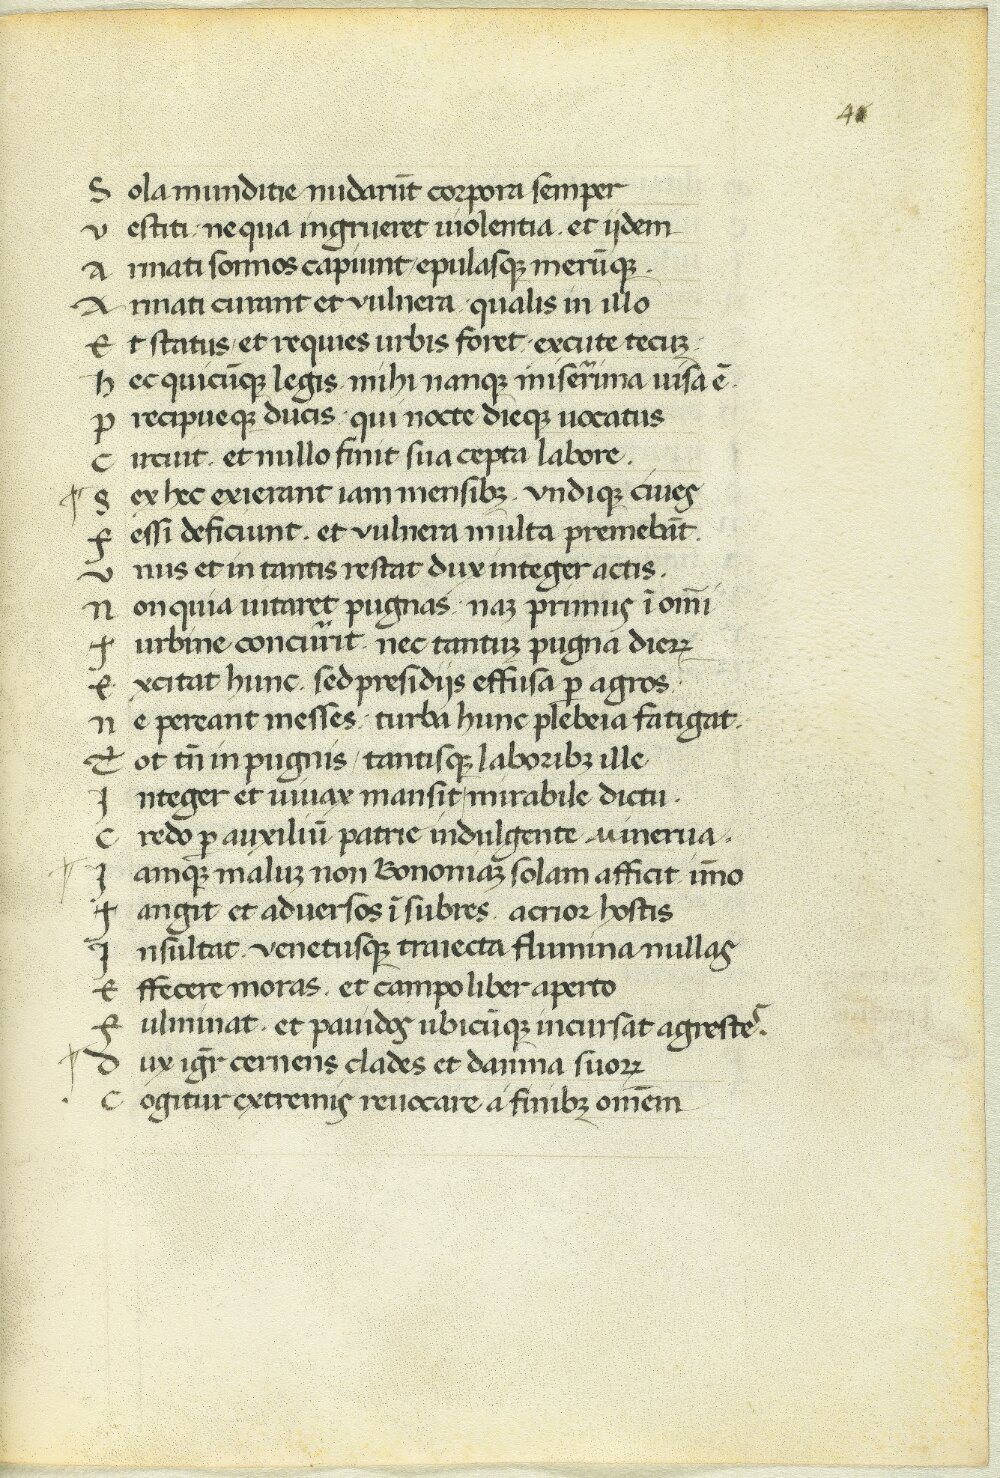 41
S ola munditie nudarūt corpora semper
v estiti · ne qua ingrueret uiolentia · et ijdem
A rmati somnos capiunt / epulasqꝫ merūqꝫ ·
A rmati curant et vulnera · qualis in illo
E t status / et requies urbis foret · excute tecuꝫ
h ec quicūqꝫ legis · mihi nanqꝫ miserrima uisa ē ·
p recipueqꝫ ducis · qui nocte dieqꝫ uocatus
C ircuit · et nullo finit sua cepta labore ·
S ex hec exierant iam mensibꝫ · vndiqꝫ ciues
F essi deficiunt · et vulnera multa premebāt ·
v nus et in tantis restat dux integer actis ·
N on quia uitaret pugnas · naꝫ primus ī om̄i
T urbine concurrit · nec tantuꝫ pugna dieꝝ
E xcitat hunc · sed presidijs effusa ꝑ agros
N e pereant messes · turba hunc plebeia fatigat ·
T ot tn̄ in pugnis / tantisqꝫ laboribꝫ ille
I nteger et uiuax mansit / mirabile dictu ·
C redo ꝑ auxiliū patrie indulgente minerua ·
I amqꝫ maluꝫ non Bononiaꝫ solam afficit īmo
T angit et aduersos ī subres · acrior hostis
I nsultat · venetusqꝫ traiecta flumina nullas
E ffecere moras · et campo liber aperto
F ulminat · et pauidos ubicūqꝫ incursat agrestes ·
D ux igr̄ cernens clades et damna suoꝝ
C ogitur extremis reuocare a finibꝫ om̄em